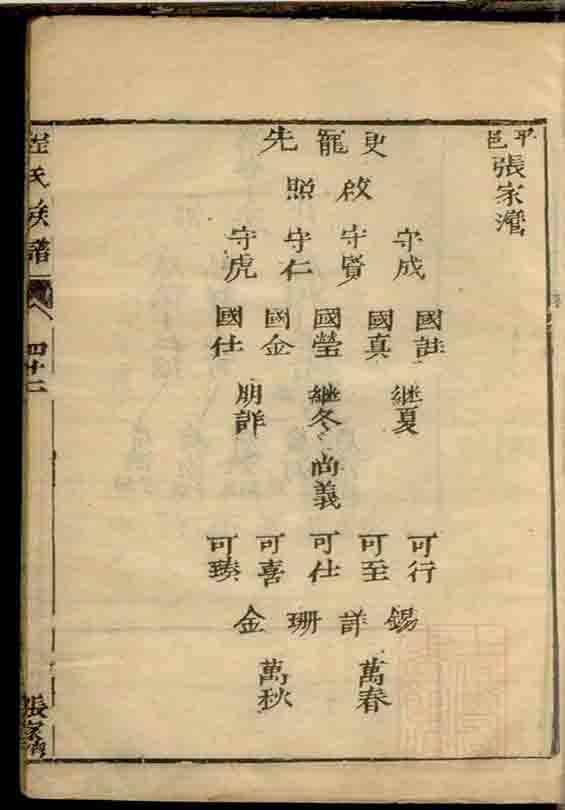 平邑張家灣
吏龍先
啟照
守成守賢守仁守虎
國註國真國瑩國金國仕
継夏継冬朋詐
尚義
可行可至可仕可喜可臻
錫詳珊金
萬春萬秋
氏族譜
四十二
張家灣